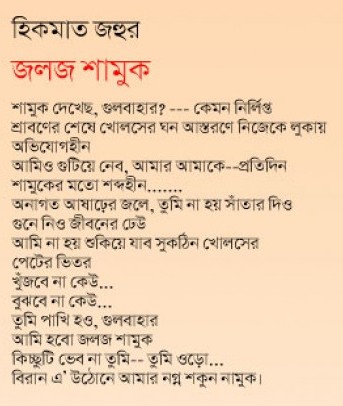 হিকমাত জহুর
জলজ শামুক
শামুক দেখেছ, গুলবাহার? --- কেমন নির্লিপ্ত
শ্রাবণের শেষে খোলসের ঘন আস্তরণে নিজেকে লুকায়
অভিযোগহীন
আমিও গুটিয়ে নেব, আমার আমাকে--প্রতিদিন
শামুকের মতো শব্দহীন.......
অনাগত আষাঢ়ের জলে, তুমি না হয় সাঁতার দিও
গুনে নিও জীবনের ঢেউ
আমি না হয় শুকিয়ে যাব সুকঠিন খোলসের
পেটের ভিতর
খুঁজবে না কেউ...
বুঝবে না কেউ...
তুমি পাখি হও, গুলবাহার
আমি হবো জলজ শামুক
কিচ্ছুটি ভেব না তুমি-- তুমি ওড়ো...
বিরান এ' উঠোনে আমার নগ্ন শকুন নামুক।